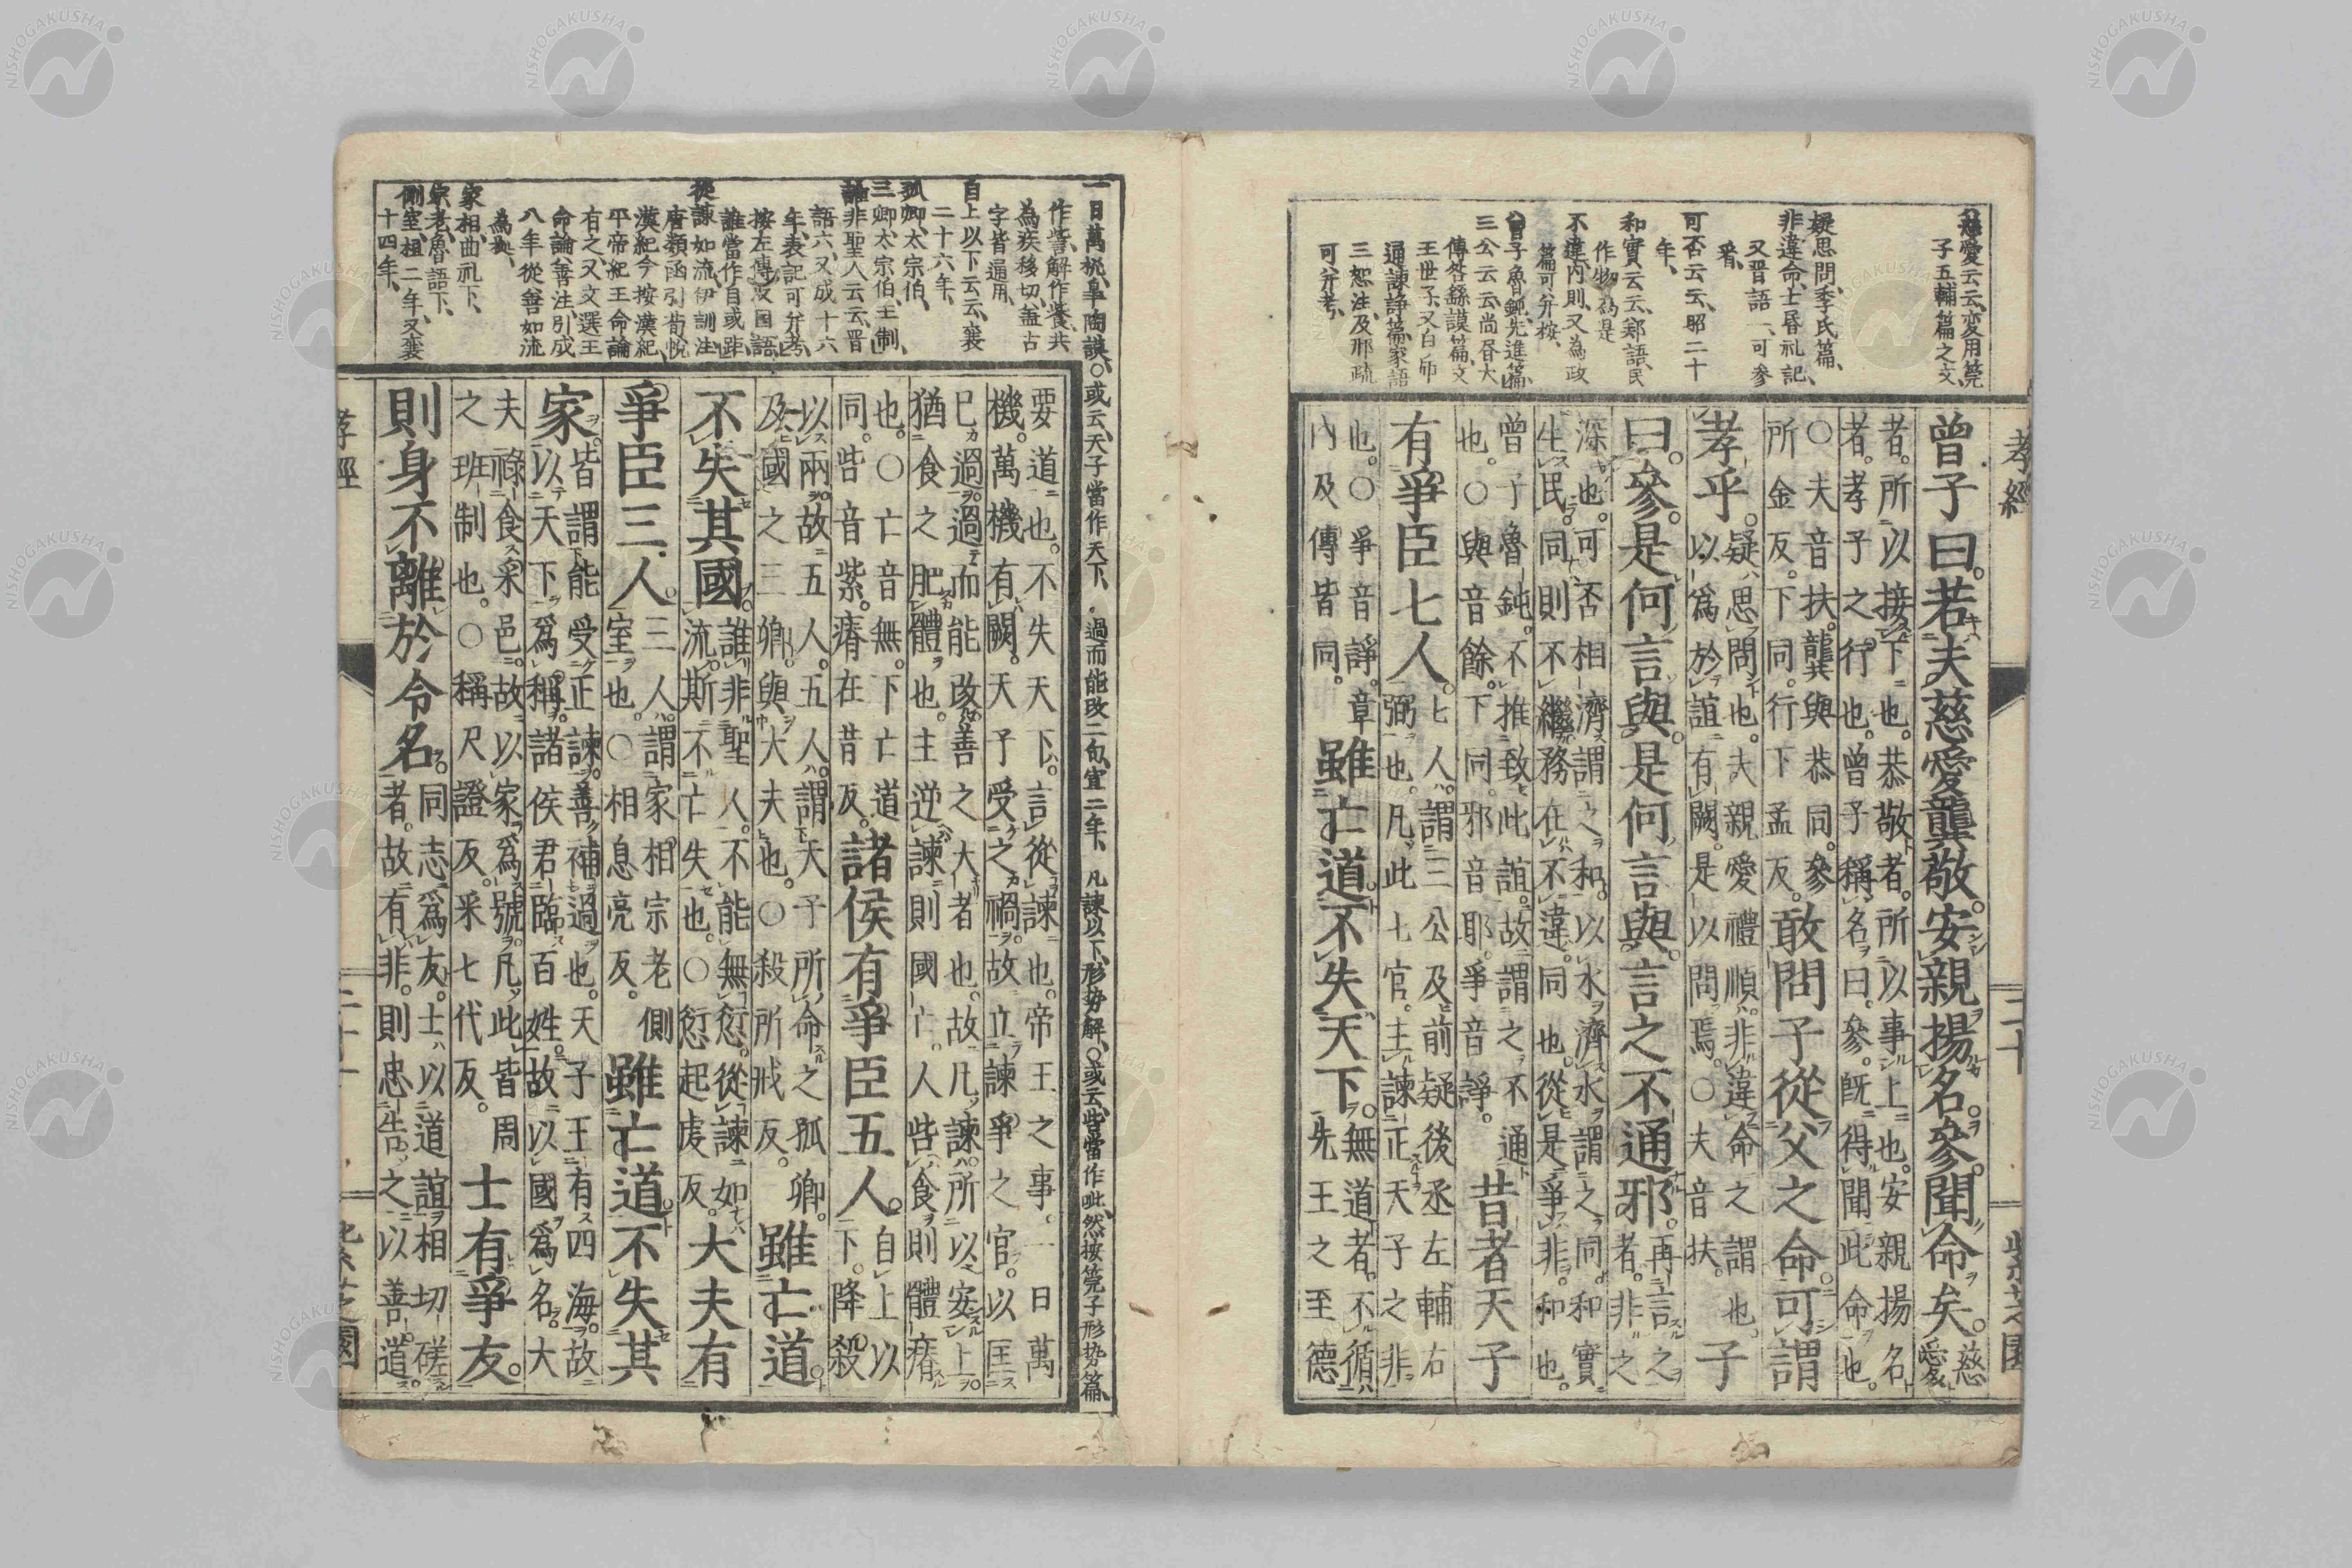 慈愛云云、変用筦
子五輔篇之文、
疑思問、季氏篇、
非違命、士昏礼記、
又晋語一、可参
看、
可否云云、昭二十
年、
和實云云、鄭語、民
作物為是
不違、内則、又為政
篇可并按、
曾子魯鈍、先進篇、
三公云云、尚書大
傳咎繇謨篇、文
王世子、又白虎
通諫諍篇、家語
三恕注、及邢疏
可并考、
孝經
二十
紫芝園
曾子曰。若夫慈愛龔敬。安親揚名。參聞命矣。
慈愛
者。所以接下也。恭敬者。所以事上也。安親揚名
者。孝子之行也。曾子稱名曰。參。既得聞此命也。
○夫音扶。龔與恭同。參
所金反。下同。行下孟反。
敢問子從父之命。可謂
孝乎。
疑思問也。夫親愛禮順。非違命之謂也。
以爲於誼有闕。是以問焉。○夫音扶。
子
曰。參。是何言與。是何言與。言之不通邪。
再言之
者。非之
深也。可否相濟謂之和。以水濟水謂之同。和實
生民。同則不繼。務在不違。同也。從是爭非。和也。
曾子魯鈍。不推致此誼。故謂之不通
也。○與音餘。下同。邪音耶。爭音諍。
昔者天子
有爭臣七人。
七人。謂三公及前疑後丞左輔右
弼也。凡此七官。主諫正天子之非
也。○爭音諍。章
内及傳皆同。
雖亡道。不失天下。
無道者。不循
先王之至德
一日萬機、皐陶謨、○或云、天子當作天下、過而能改二句、宣二年、凡諫以下、形勢解、○或云、些當作呲、然按筦子形勢篇、
作訾、解作餈、共
為疾移切、盖古
字皆通用、
自上以下云云、襄
二十六年、
孤卿、太宗伯、
三卿、太宗伯、王制、
誰非聖人云云、晋
語六、又成十六
年、表記可并考、
按左傳及国語、
誰當作自或距、
從諫如流、伊訓注
唐類函引荀悦
漢紀、今按漢紀、
平帝紀王命論
有之、又文選王
命論善注、引成
八年從善如流
為拠、
家相、曲礼下、
宗老、魯語下、
側室、桓二年、又襄
十四年、
要道也。不失天下。言從諫也。帝王之事。一日萬
機。萬機有闕。天子受之禍。故立諫爭之官。以匡
已過。過而能改。善之大者也。故凡諫。所以安上。
猶食之肥體也。主逆諫則國亡。人呰食則體瘠
也。○亡音無。下亡道
同。呰音紫。瘠在昔反。
諸侯有爭臣五人。
自上以
下。降殺
以兩。故五人。五人。謂天子所命之孤卿。
及國之三卿。與大夫也。○殺所戒反。
雖亡道。
不失其國。
誰非聖人。不能無愆。從諫如
流。斯不亡失也。○愆起虔反。
大夫有
爭臣三人。
三人。謂家相宗老側
室也。○相息亮反。
雖亡道。不失其
家。
皆謂能受正諫。善補過也。天子王有四海。故
以天下爲稱。諸侯君臨百姓。故以國爲名。大
夫祿食采邑。故以家爲號。凡此皆周
之班制也。○稱尺證反。采七代反。
士有爭友。
則身不離於令名。
同志爲友。士以道誼相切磋
者。故有非。則忠告之以善道。
孝經
二十一
紫芝園